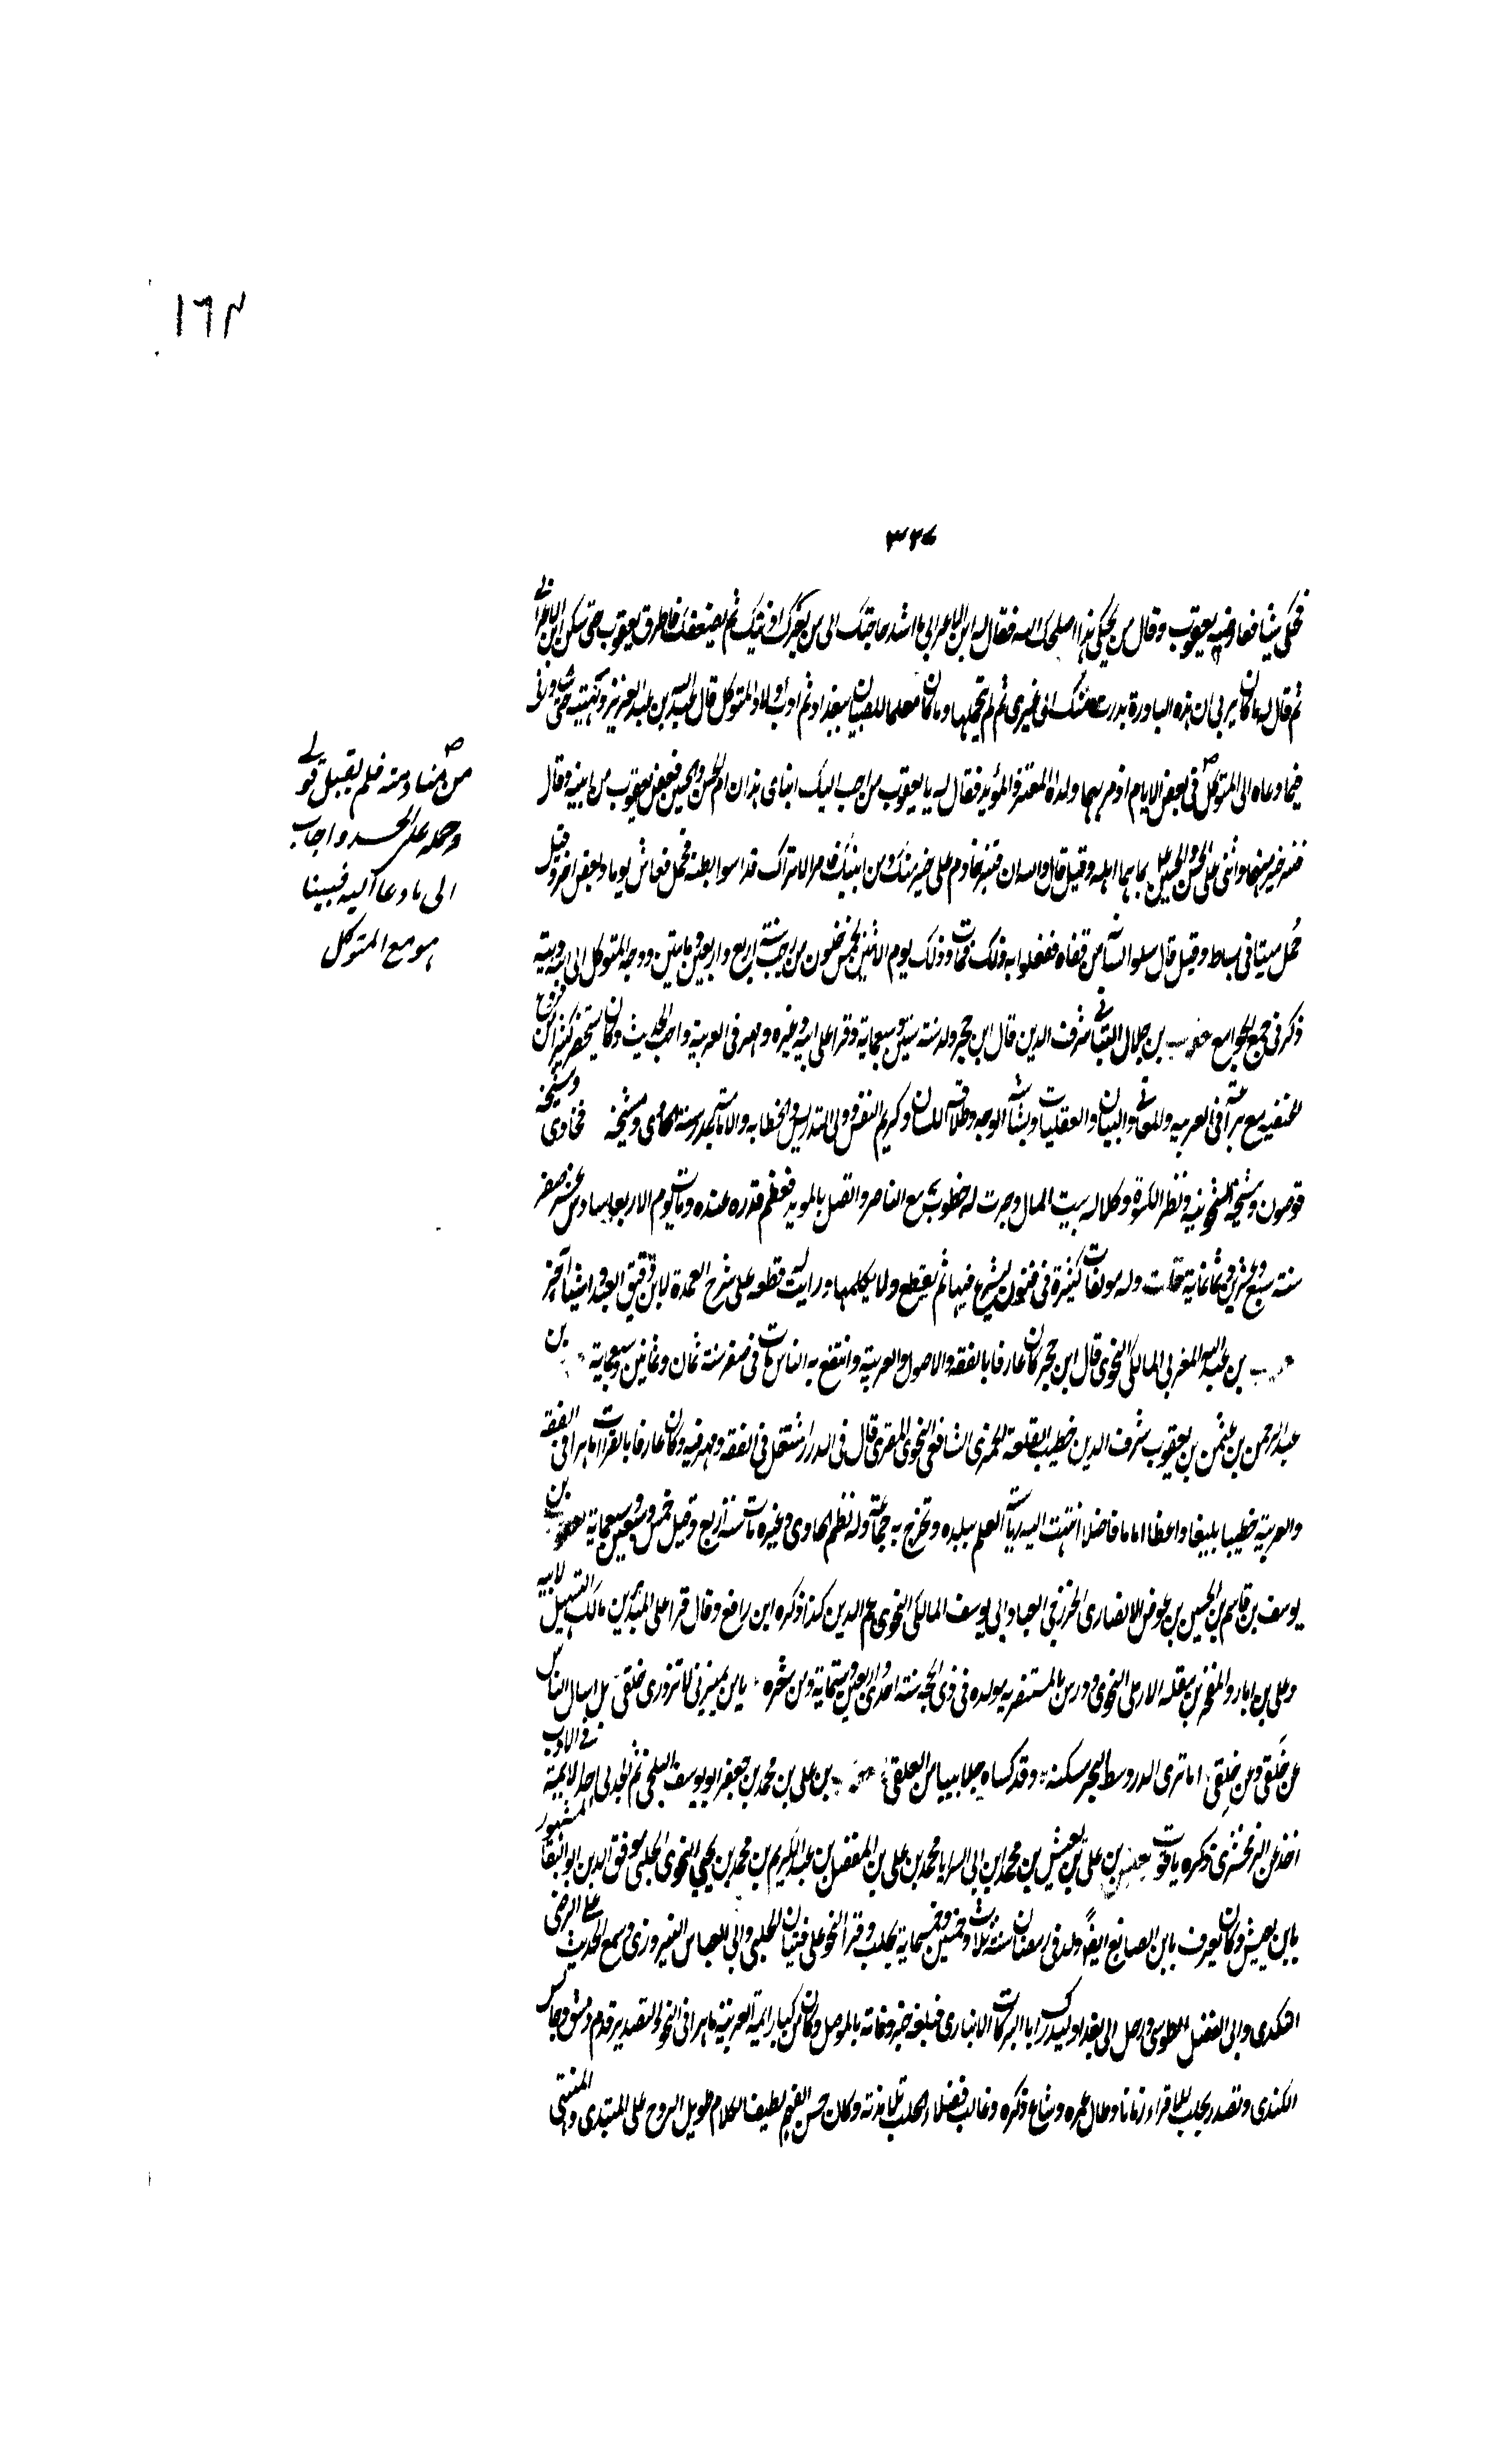 ١٦٢
٣٢٤
فحكى شيئا فعارضه يعقوب وقال من يحكي هذا اصلحك الله فقال له ابن الاعرابي ما اشد حاجتك الى من يعرك اذنيك ثم يصفعك فاطرق يعقوب حتى سكن ابن الاعرابي
ثم قال له ما كان يسرني ان هذه البادرة بدرت منك الى غيري ثم لم يحتملها وكان معلما للصبيان ببغداد ثم ادب اولاد المتوكل قال عبد الله بن عبد العزيز ونهيته حين شاورني
فيما دعاه الى المتوكل في بعض الايام اذ مر بهما ولداه المعتز والمؤيد فقال له يا يعقوب من احب اليك ابناي هذان ام الحسن والحسين فغض يعقوب من ابنيه وقال
من منادمته فلم يقبل قولي
وحمله على الحسد واجاب
الى ما دعا اليه فبينا
هو مع المتوكل
قنبر خير منهما واثنى على الحسن والحسين بما هما اهله وقيل قال والله ان قنبر خادم علي خير منك ومن ابنيك فامر الاتراك فداسوا بطنه فحمل فعاش يوما وبعض اخر وقيل
حمل ميتا في بساط وقيل قال سلوا لسانه من قفاه ففعلوا به ذلك فمات وذلك يوم الاثنين لخمس خلون من رجب سنة اربع واربعين ومايتين ووجه المتوكل الى امه ديته
ذكر في جمع الجوامع يعقوب بن جلال التباني شرف الدين قال ابن حجر ولد سنة ستين وسبعماية وقرا على ابيه وغيره ومهر في العربية واحب الحديث وكان يستحضر كثيرا من فروع
الحنفية مع براعته في العربيه والمعاني والبيان والعقليات وبشاشة الوجه وطلاقة اللسان وكريم النفس وولي التدريس والخطابه والامامة بمدرسة الجاي ومشيخة
قوصون ومشيخة الشيخونيه ونظر الكسوة وكالة بيت المال وجرت له خطوب مع الناصر واتصل بالمويد فعظم قدره عنده ومات يوم الاربعا سادس عشر صفر
سنة سبع وعشرين وثمانماية قلت وله مولفات كثيرة في فنون يشرع فيها ثم يقطع ولا يكملها ورايت له قطعه على شرح العمدة لابن دقيق العيد واشيا آخر
يعقوب بن عبد الله المغربي المالكي النحوي قال ابن حجر كان عارفا بالفقه والاصول والعربية وانتفع به الناس مات في صفر سنة ثمان وثمانين وسبعماية يعقوب بن
عبد الرحمن بن عثمن بن يعقوب شرف الدين خطيب القلعة الحموي الشافعي النحوي المقري قال في الدرر اشتغل في الفقه ومهر فيه وكان عارفا بالقراات ماهرا في الفقه
والعربية خطيبا بليغا واعظا اماما فاضلا انتهت اليه رياسة العلم ببلده وتخرج به جماعة وله نظم الحاوي وغيره مات سنة اربع وقيل خمس وسبعين وسبعماية يعقوب بن
يوسف بن قاسم بن الحسين بن عوض الانصاري الخزرجي العبادي ابو يوسف المالكي النحوي علم الدين كذا ذكره ابن رافع وقال قرا على البدر بن مالك التسهيل لابيه
وعلى بن اياز والفخر بن بقله الاربلي النحوي ودرس بالمستنصريه مولده في ذي الحجة سنة احدى واربعين وستماية ومن شعره يا من يميزني لا تزدري خلقي بل اسال الناس
عن خلقي ومن خلقي اما ترى الدر وسط البحر مسكنه وقد كساه جلابيبا من العلق يعقوب بن علي بن محمد بن جعفر ابو يوسف البلخي ثم الجندلي احد الايمة في الادب
اخذ عن الزمخشري ذكره ياقوت يعيش بن علي بن يعيش بن محمد بن ابي السرايا محمد بن علي بن المفضل بن عبد الكريم بن محمد بن يحيي النحوي الحلبي موفق الدين ابو البقا المشهور
بابن يعيش وكان يعرف بابن الصايغ ايضا ولد في رمضان سنة ثلاث وخمسين وخمسماية بحلب وقرا النحو على فتيان الحلبي وابي العباس النيروزي وسمع الحديث على الرضي
التكدي وابي الفضل الطوسي ورحل الى بغداد ليدرك ابا البركات الانباري فبلغه خبر وفاته بالموصل وكان من كبار ايمة العربية ماهرا في النحو والتصريف قدم دمشق وجالس
الكندي وتصدر بحلب للاقراء زمانا وطال عمره وشاع ذكره وغالب فضلاء حلب تلامذته وكان حسن الفهم لطيف الكلام طويل الروح على المبتدي والمنتهي